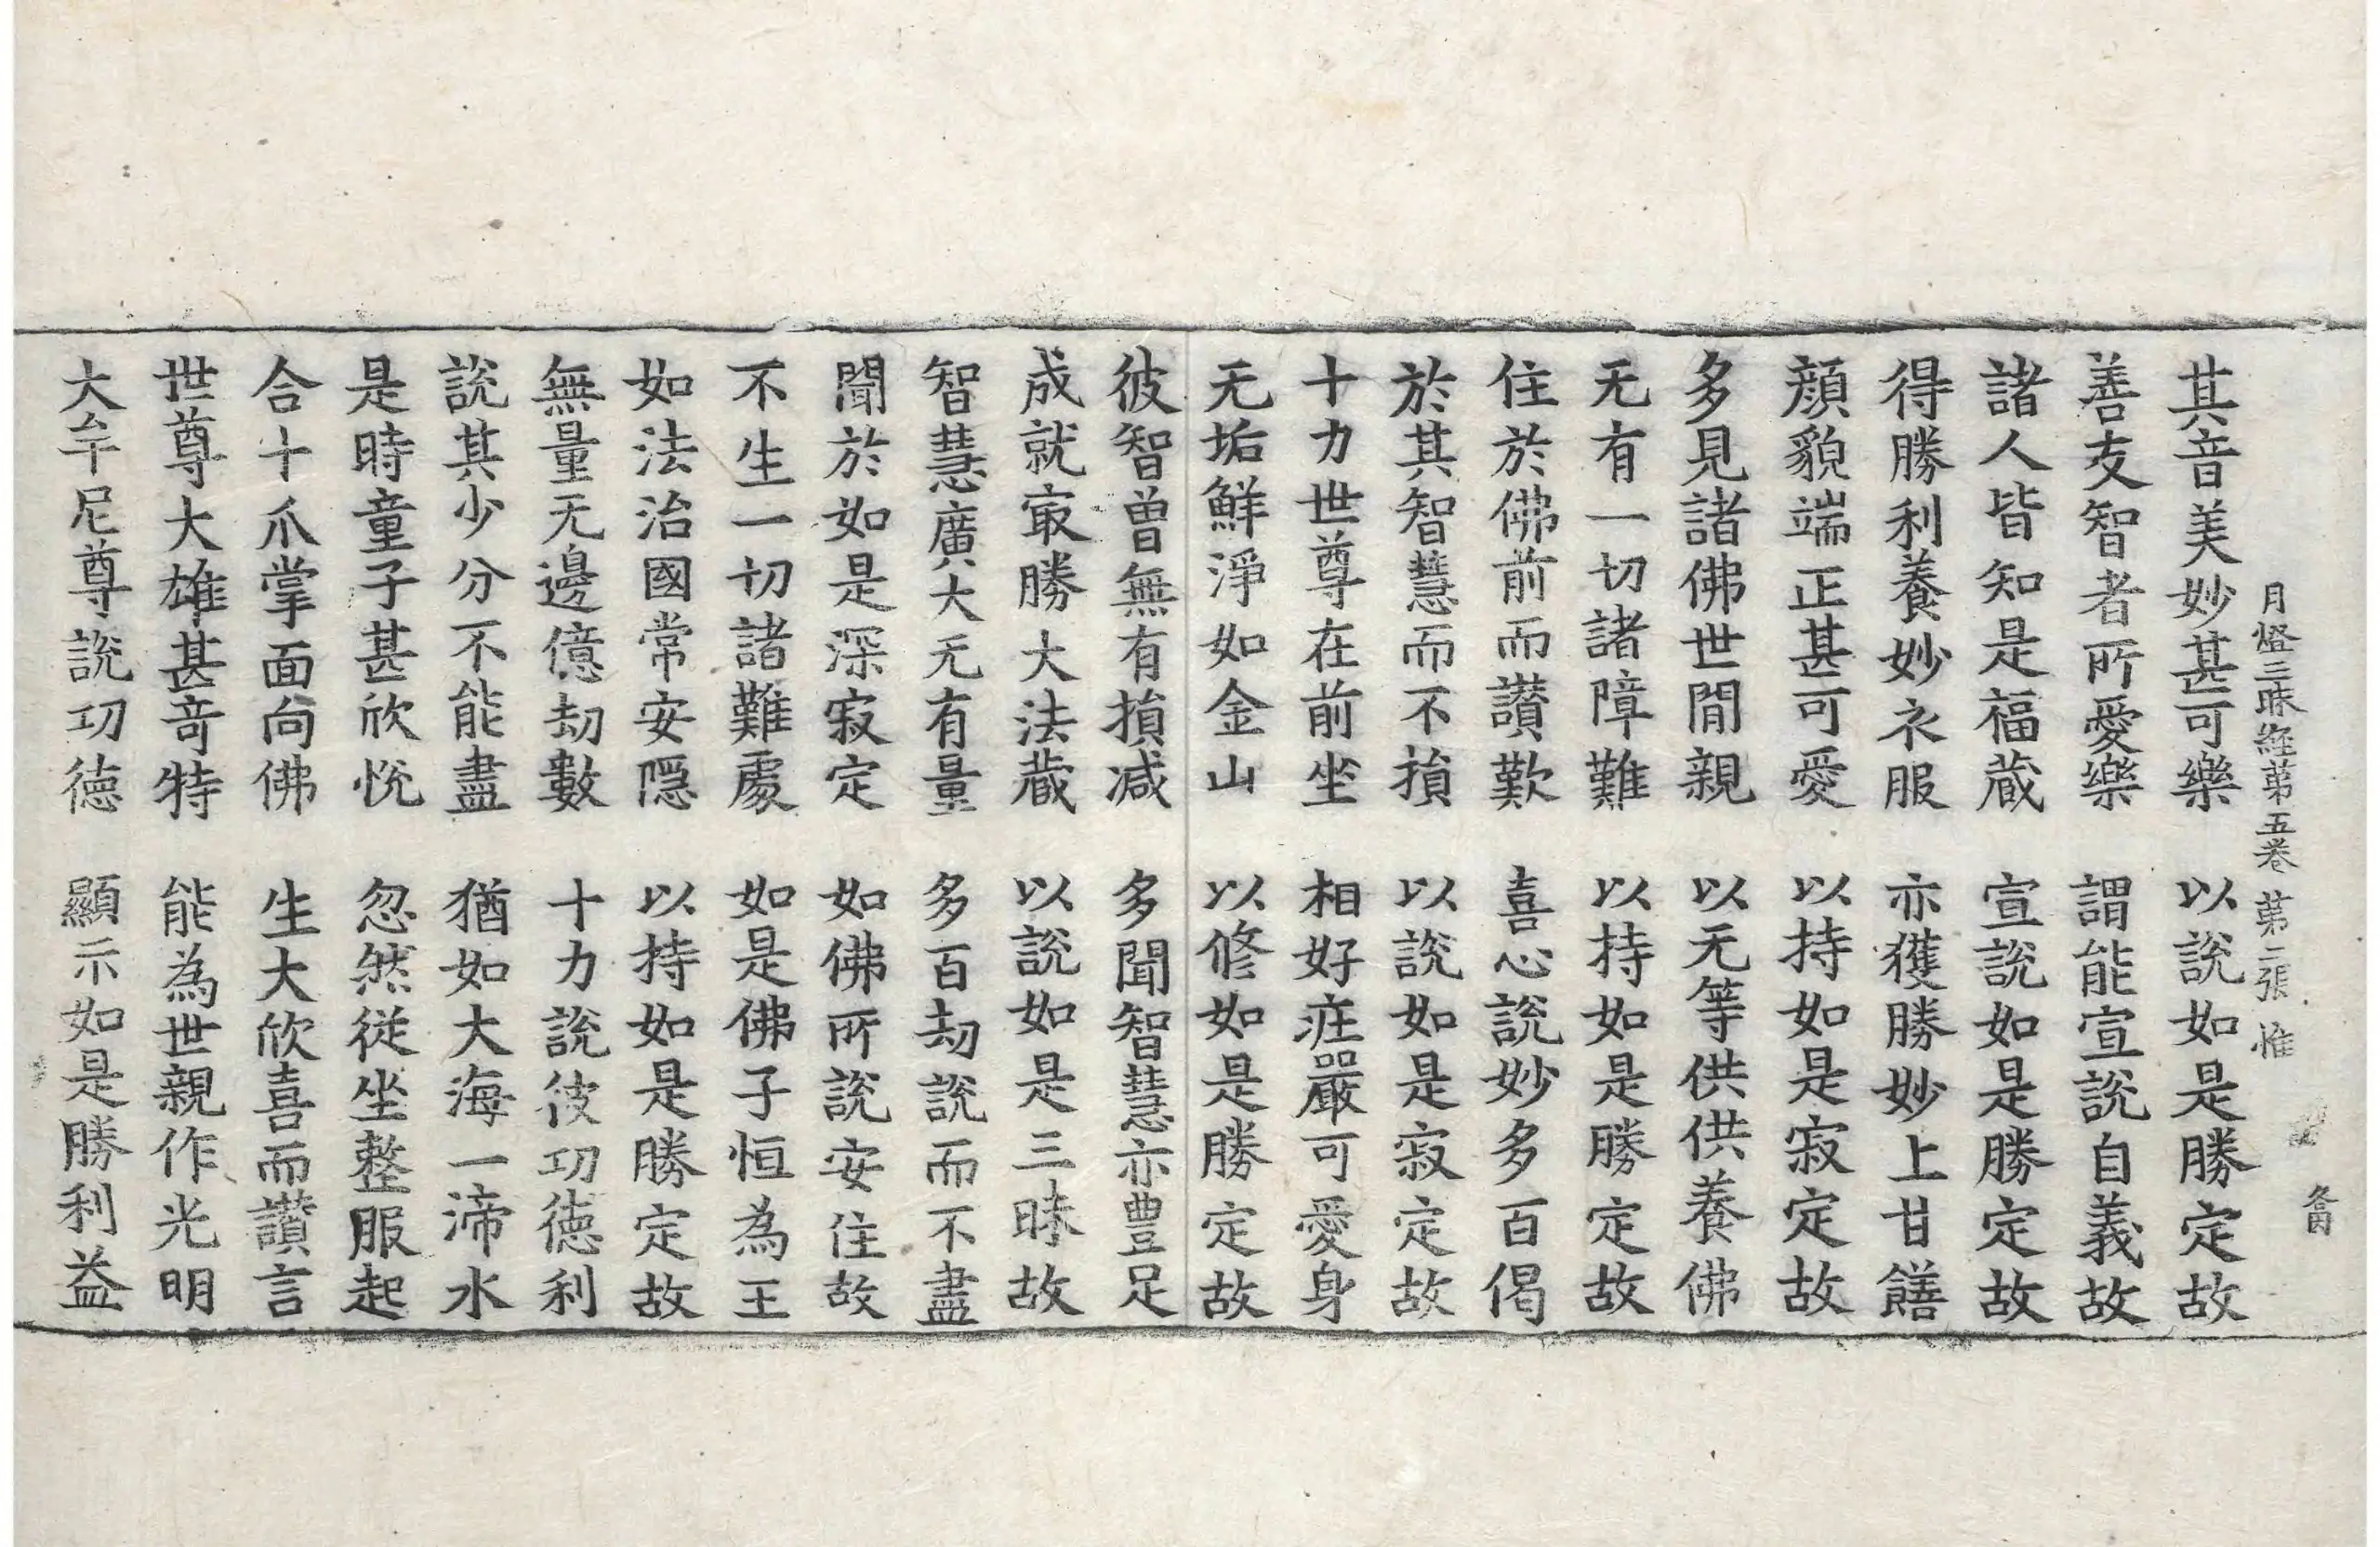 月燈三昧経苐五卷 苐二張 惟
其音美妙甚可樂 以說如是勝定故
善友智者所愛樂 謂能宣說自義故
諸人皆知是福蔵 宣說如是勝定故
得勝利養妙衣服 亦獲勝妙上甘饍
顏貌端正甚可愛 以持如是寂定故
多見諸佛世間親 以无等供供養佛
无有一切諸障難 以持如是勝定故
住於佛前而讃歎 喜心說妙多百偈
於其智慧而不損 以說如是寂定故
十力世尊在前坐 相好疰嚴可愛身
无垢鮮淨如金山 以修如是勝定故
彼智曾無有損减 多聞智慧亦豊足
成就㝡勝大法蔵 以說如是三昧故
智慧廣大无有量 多百劫說而不盡
聞於如是深寂定 如佛所說安住故
不生一切諸難處 如是佛子恒為王
如法治國常安隠 以持如是勝定故
無量无邊億劫數 十力說彼功徳利
說其少分不能盡 猶如大海一渧水
是時童子甚欣悅 忽然従坐整服起
合十爪掌面向佛 生大欣喜而讃言
世尊大雄甚奇特 能為世親作光明
大牟尼尊說功徳 顯示如是勝利益